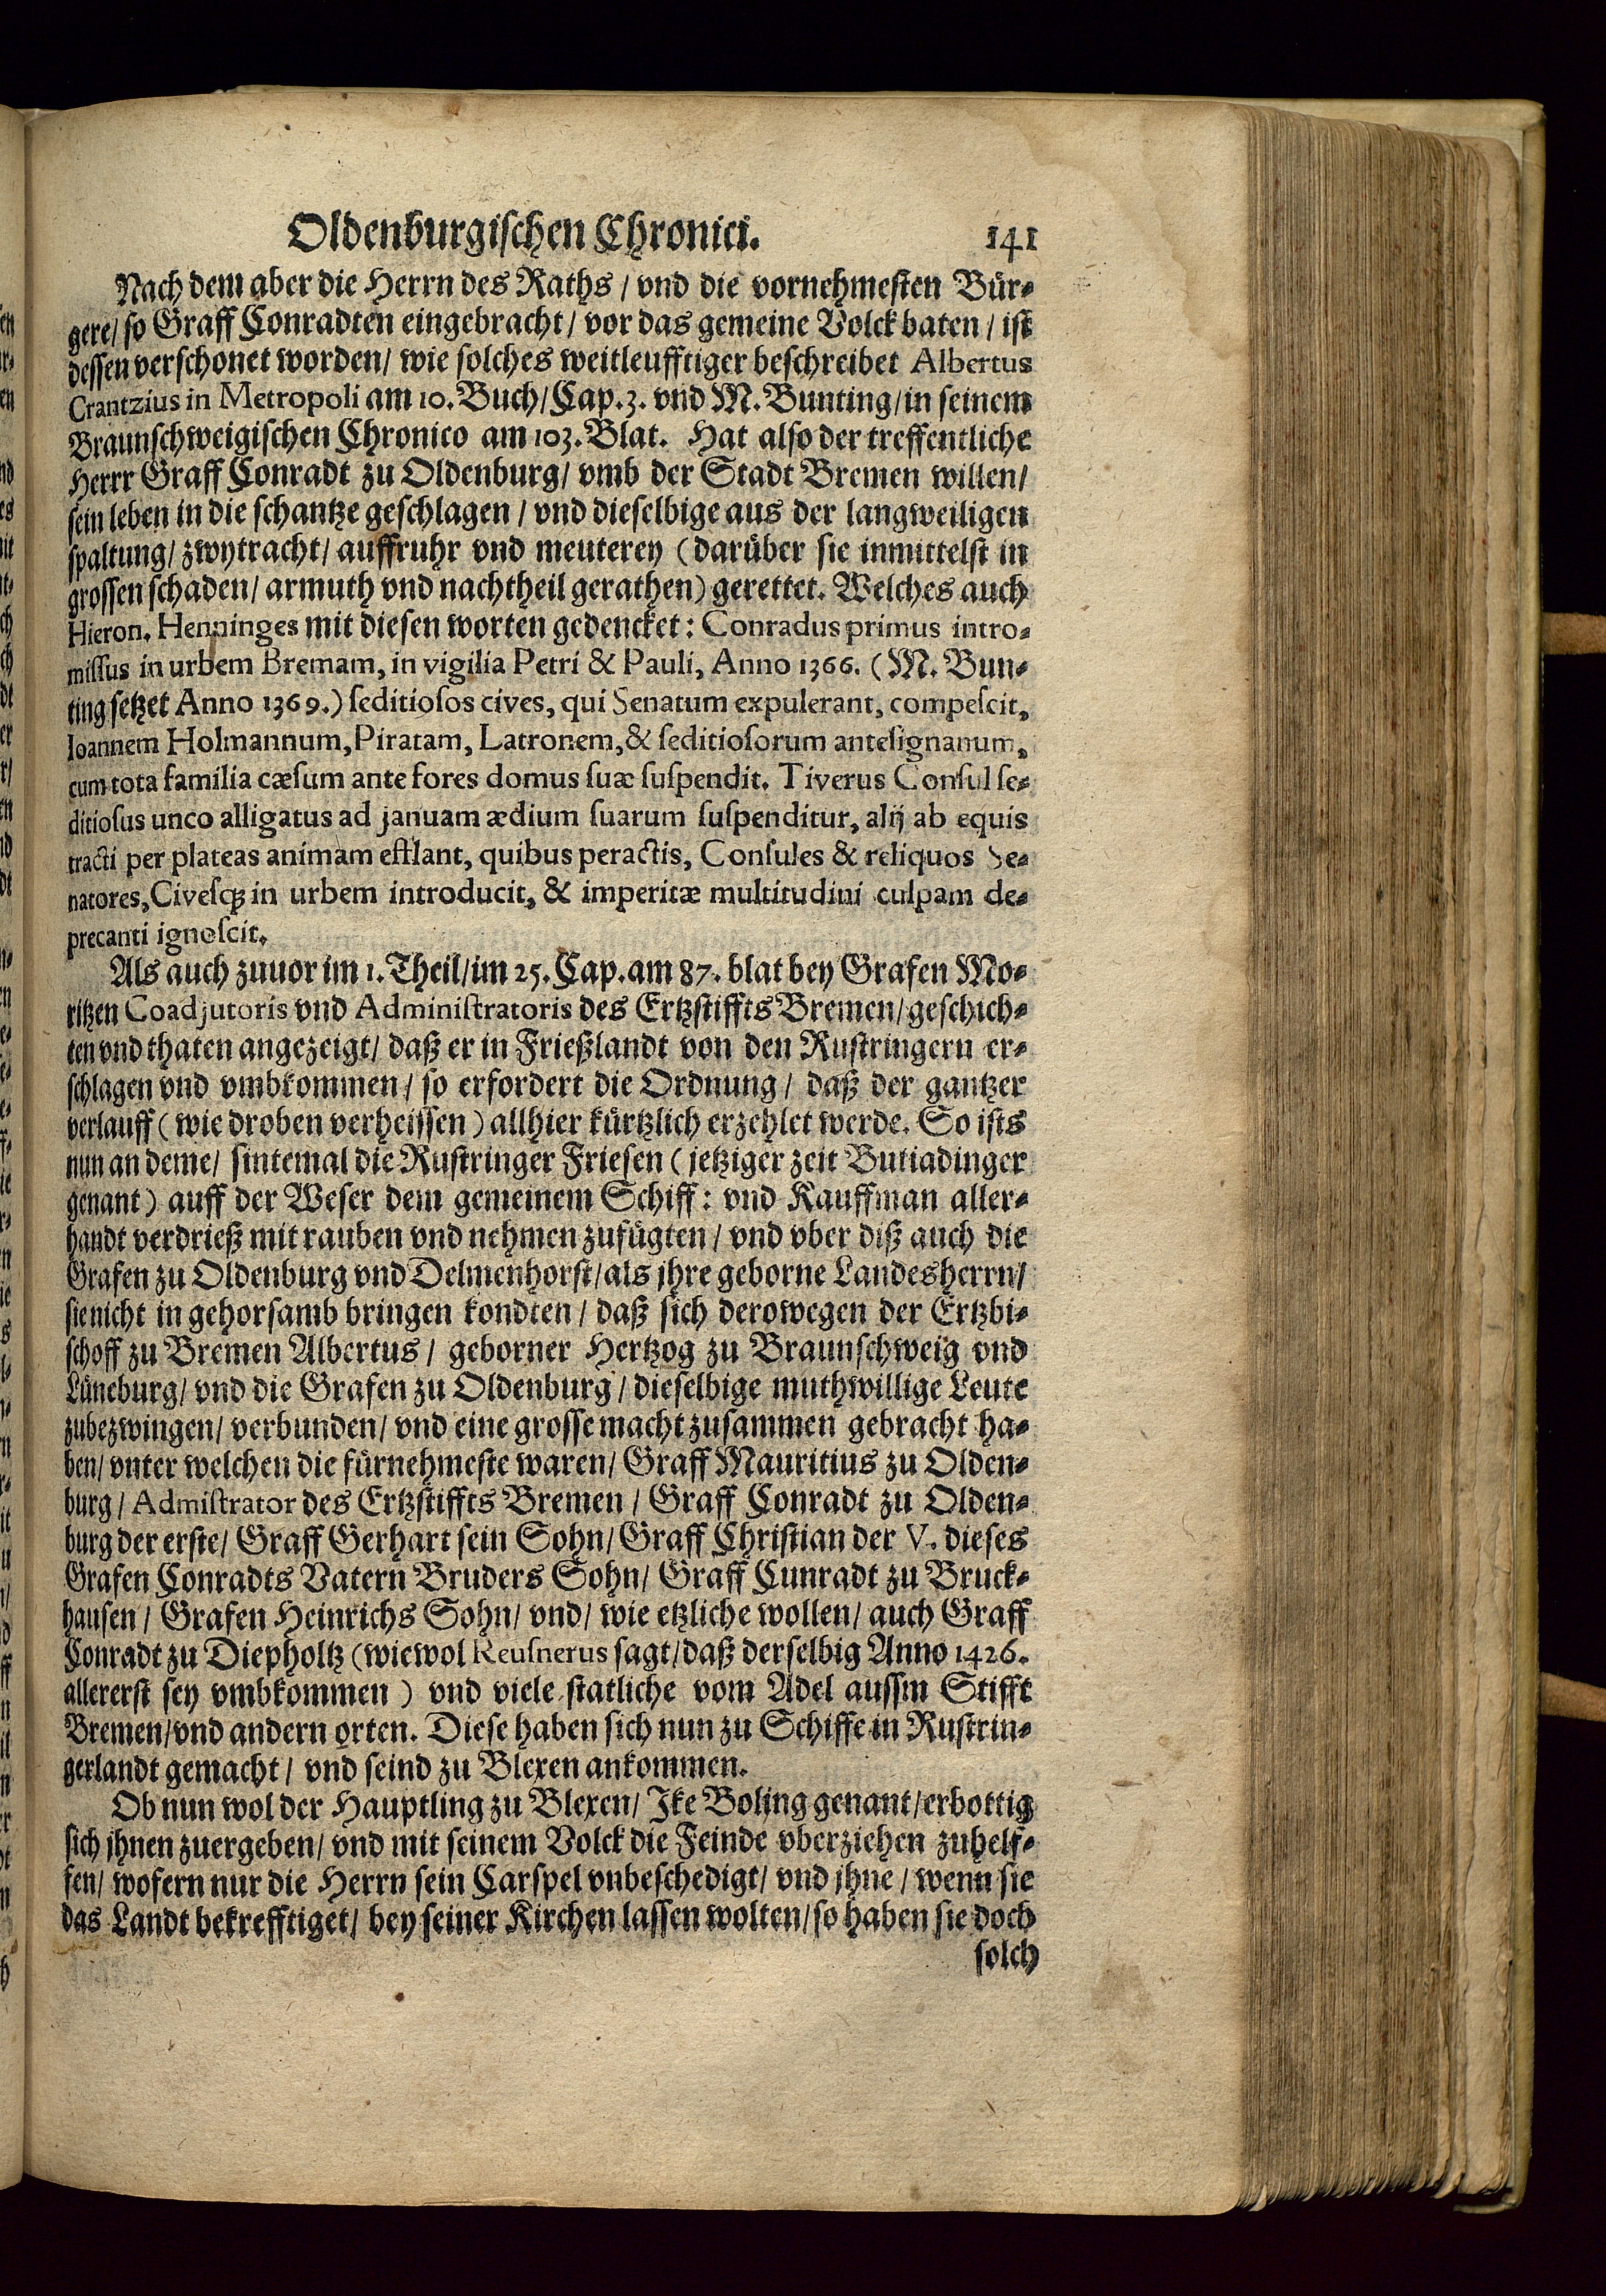 Oldenburgischen Chronici. 141
Nach dem aber die Herrn des Raths / vnd die vornehmesten Bür-
gere / so Graff Conradten eingebracht / vor das gemeine Volck baten / ist
dessen verschonet worden / wie solches weitleufftiger beschreibet Albertus
Crantzius in Metropoli am 10. Buch / Cap. 3. vnd M. Bunting / in seinem
Braunschweigischen Chronico am 103. Blat. Hat also der treffentliche
Herrr Graff Conradt zu Oldenburg / vmb der Stadt Bremen willen /
sein leben in die schantze geschlagen / vnd dieselbige aus der langweiligen
spaltung / zwytracht / auffruhr vnd meuterey (darüber sie inmittelst in
grossen schaden / armuth vnd nachtheil gerathen) gerettet. Welches auch
Hieron. Henninges mit diesen worten gedencket: Conradus primus intro-
missus in urbem Bremam, in vigilia Petri & Pauli, Anno 1366. (M. Bun-
ting setzet Anno 1369.) seditiosos cives, qui Senatum expulerant, compescit,
Ioannem Holmannum, Piratam, Latronem, & seditiosorum antesignanum,
cum tota familia cæsum ante fores domus suæ suspendit. Tiverus Consul se-
ditiosus unco alligatus ad januam ædium suarum suspenditur, alij ab equis
tracti per plateas animam efflant, quibus peractis, Consules & reliquos Se-
natores, Civesq; in urbem introducit, & imperitæ multitudini culpam de-
precanti ignoscit.
Als auch zuuor im 1. Theil / im 25. Cap. am 87. blat bey Grafen Mo-
ritzen Coadjutoris vnd Administratoris des Ertzstiffts Bremen / geschich-
ten vnd thaten angezeigt / daß er in Frießlandt von den Rustringern er-
schlagen vnd vmbkommen / so erfordert die Ordnung / daß der gantzer
verlauff (wie droben verheissen) allhier kürtzlich erzehlet werde. So ists
nun an deme / sintemal die Rustringer Friesen (jetziger zeit Butiadinger
genant) auff der Weser dem gemeinem Schiff: vnd Kauffman aller-
handt verdrieß mit rauben vnd nehmen zufügten / vnd vber diß auch die
Grafen zu Oldenburg vnd Delmenhorst / als jhre geborne Landesherrn /
sie nicht in gehorsamb bringen kondten / daß sich derowegen der Ertzbi-
schoff zu Bremen Albertus / geborner Hertzog zu Braunschweig vnd
Lüneburg / vnd die Grafen zu Oldenburg / dieselbige muthwillige Leute
zubezwingen / verbunden / vnd eine grosse macht zusammen gebracht ha-
ben / vnter welchen die fürnehmeste waren / Graff Mauritius zu Olden-
burg / Admistrator des Ertzstiffts Bremen / Graff Conradt zu Olden-
burg der erste / Graff Gerhart sein Sohn / Graff Christian der V. dieses
Grafen Conradts Vatern Bruders Sohn / Graff Cunradt zu Bruck-
hausen / Grafen Heinrichs Sohn / vnd / wie etzliche wollen / auch Graff
Conradt zu Diepholtz (wiewol Reusnerus sagt / daß derselbig Anno 1426.
allererst sey vmbkommen) vnd viele statliche vom Adel aussm Stifft
Bremen / vnd andern orten. Diese haben sich nun zu Schiffe in Rustrin-
gerlandt gemacht / vnd seind zu Blexen ankommen.
Ob nun wol der Hauptling zu Blexen / Ike Boling genant / erbottig
sich jhnen zuergeben / vnd mit seinem Volck die Feinde vberziehen zuhelf-
fen / wofern nur die Herrn sein Carspel vnbeschedigt / vnd jhne / wenn sie
das Landt bekrefftiget / bey seiner Kirchen lassen wolten / so haben sie doch
solch